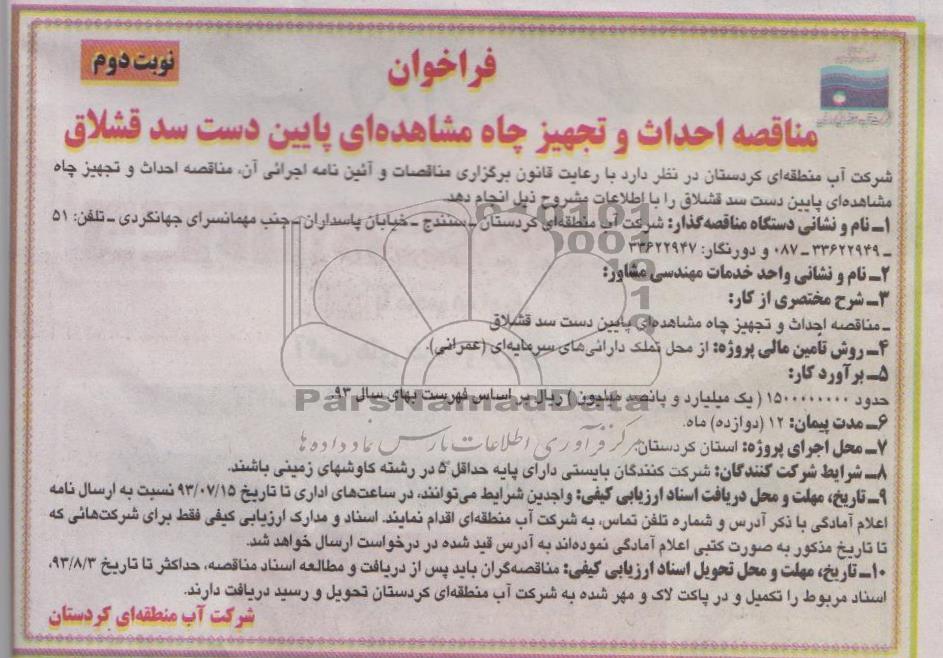 نوبت دوم
فراخوان
مناقصه احداث و تجهیز چاه مشاهده‌ای پایین دست سد قشلاق
شرکت آب منطقه‌ای کردستان در نظر دارد با رعایت قانون برگزاری مناقصات و آئین نامه اجرائی آن، مناقصه احداث و تجهیز چاه
مشاهده‌ای پایین دست سد قشلاق را با اطلاعات مشروح ذیل انجام دهد.
۱ـ نام و نشانی دستگاه مناقصه‌گذار: شرکت آب منطقه‌ای کردستان ـ سنندج ـ خیابان پاسداران ـ جنب مهمانسرای جهانگردی ـ تلفن: ۵۱
ـ ۳۳۶۲۲۹۴۹ ـ ۰۸۷ و دورنگار: ۳۳۶۲۲۹۴۷
۲ـ نام و نشانی واحد خدمات مهندسی مشاور:
۳ـ شرح مختصری از کار:
ـ مناقصه احداث و تجهیز چاه مشاهده‌ای پایین دست سد قشلاق
۴ـ روش تامین مالی پروژه: از محل تملک دارائی‌های سرمایه‌ای (عمرانی).
۵ـ برآورد کار:
حدود ۱۵۰۰۰۰۰۰۰۰ ( یک میلیارد و پانصد میلیون ) ریال بر اساس فهرست بهای سال ۹۳.
ParsNamadData
۶ـ مدت پیمان: ۱۲ (دوازده) ماه.
مرکز فرآوری اطلاعات پارس نماد داده ها
۷ـ محل اجرای پروژه: استان کردستان.
۸ـ شرایط شرکت کنندگان: شرکت کنندگان بایستی دارای پایه حداقل ۵ در رشته کاوشهای زمینی باشند.
۹ـ تاریخ، مهلت و محل دریافت اسناد ارزیابی کیفی: واجدین شرایط می‌توانند، در ساعت‌های اداری تا تاریخ ۹۳/۰۷/۱۵ نسبت به ارسال نامه
اعلام آمادگی با ذکر آدرس و شماره تلفن تماس، به شرکت آب منطقه‌ای اقدام نمایند. اسناد و مدارک ارزیابی کیفی فقط برای شرکت‌هائی که
تا تاریخ مذکور به صورت کتبی اعلام آمادگی نموده‌اند به آدرس قید شده در درخواست ارسال خواهد شد.
۱۰ـ تاریخ، مهلت و محل تحویل اسناد ارزیابی کیفی: مناقصه‌گران باید پس از دریافت و مطالعه اسناد مناقصه، حداکثر تا تاریخ ۹۳/۸/۳،
اسناد مربوط را تکمیل و در پاکت لاک و مهر شده به شرکت آب منطقه‌ای کردستان تحویل و رسید دریافت دارند.
شرکت آب منطقه‌ای کردستان